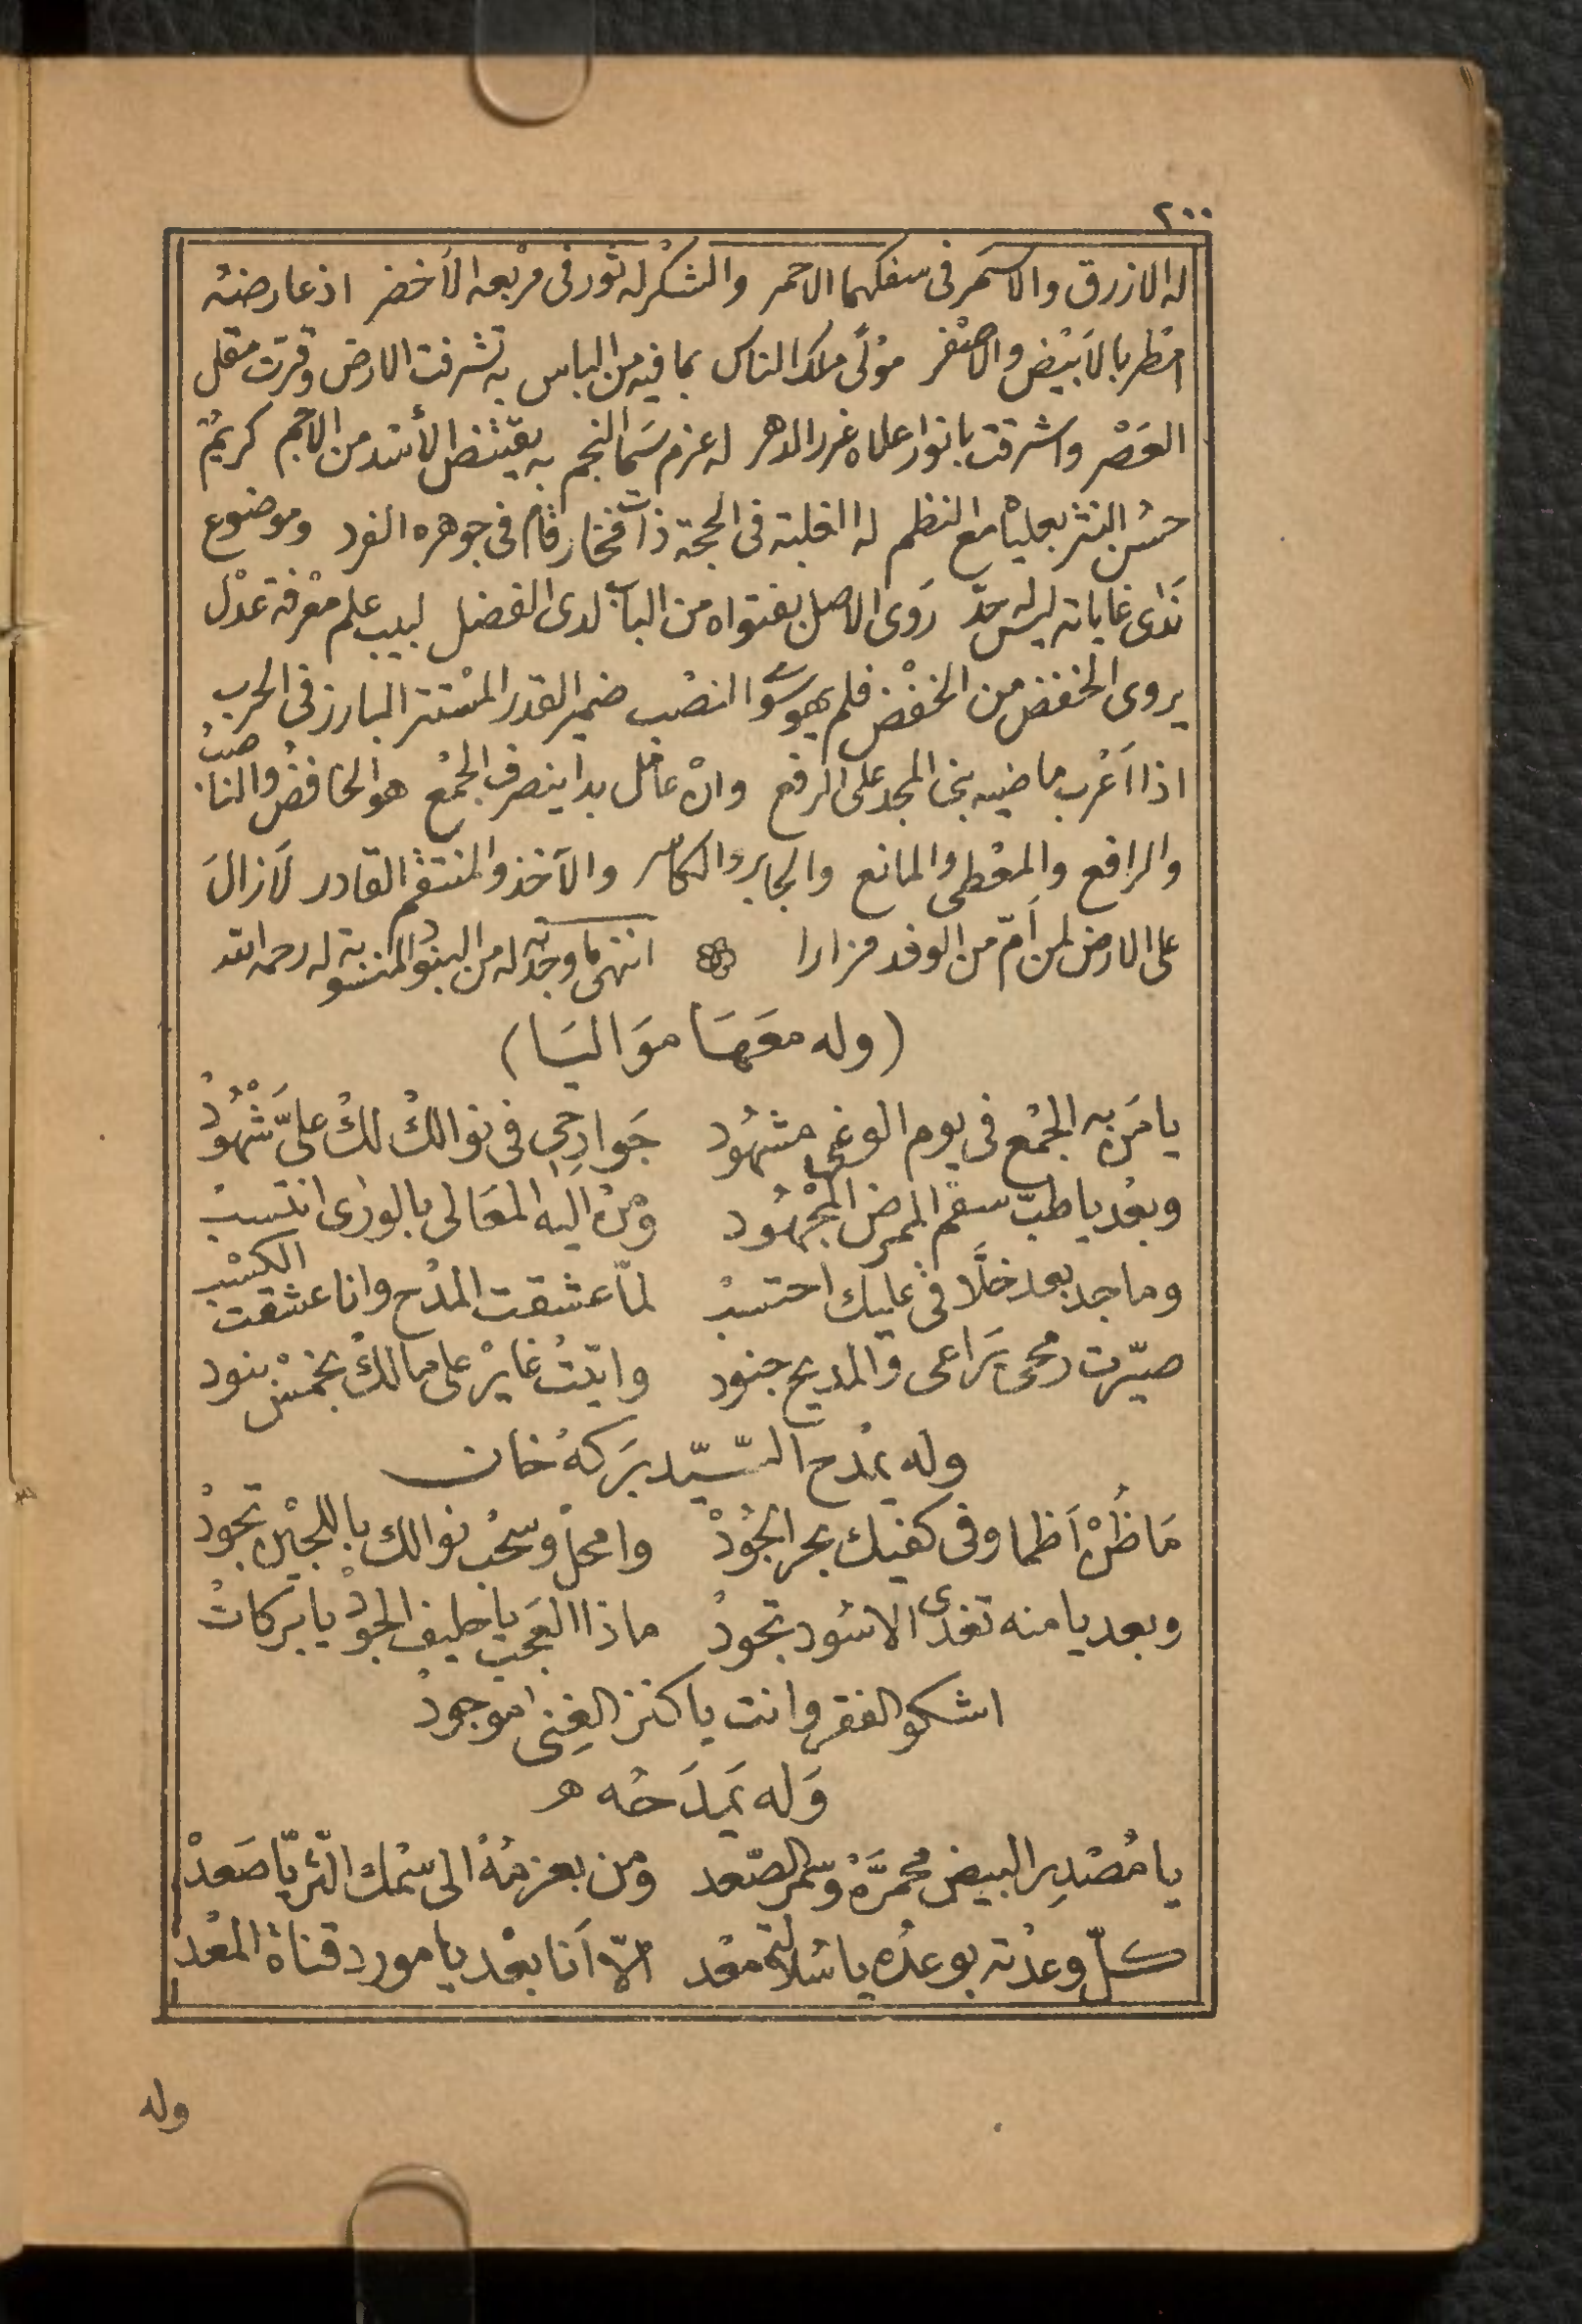 ٢٠٠
له الازرق والاسمر فى سفكهما الاحمر والشكر له نور فى مربعه الأخضر اذ عارضته
امْطر بالأبْيض والاصْفر موْلًى ملك الناس بما فيه من الباس به تشرفت الارض وقرّت مقل
العَصْر واشرقت بانوار علاه غرر الدهر له عزم سَما النجم به يقتنض الأسْد من الاجم كريمٌ
حسْن النثر بعلياه مع النظم له الغلبة فى الحجة ذات فخار قام فى جوهره الفرد وموضوع
نَدٰى غاياته ليس له حدّ رَوى الاصل بفتواه من الباب لدى الفضل لبيب علم معْرفة عدْل
يروى الخفض من الخفْض فلم يهو سوَى النصْب ضمير القدر المسْتتر البارز فى الحرب
اذا اَعْرب ماضيه بنى المجد على الرفع وانْ عامْل بدا ينصرف الجمْع هو الخافض والناصبُ
والرافع والمعْطى والمانع والجابر والكاسر والآخذ والمنتقم القادر لاَزالَ
على الارض لمن اَمّ من الوفد مزارا انتهى ما وجدته له من البنود المنسوبة له رحمه الله
(وله معَهَا موَاليَا)
يا مَن به الجمْع فى يوم الوغى مشهُود جَوارِحِى فى نوالكْ لكْ علىّ شْهُودْ
وبعْد يا طبّ سقم الممرض المجْهُود ومنْ اليه المعَالى بالورٰى انتسبْ
وماجد بعد خلَّا فى عليك احتسبْ لمّا عشقت المدْح وانا عشقت الكسْب
صيّرت رمحى يَراعى والمديح جنود وابّتْ غايرْ على مالكْ بخمسْ بنود
وله يمْدح السّيّد بَركهْ خان
مَا ظُنْ اَظما وفى كفيك بحر الجُودْ وامحلْ وسحْب نوالك باللجيْن تجودْ
وبعد يا منه تغدى الاسُود تجودْ ماذا العَجب يا حليف الجودْ يا بركاتْ
اشكو الفقر وانت يا كنز الغِنى موجودْ
وَله يَمدَحُه
يا مُصْدِر البيض محمرَّهْ وسمْر الصّعد ومن بعزمهْ الى سمْك الثّريّا صَعدْ
كلّ وعدْته بوعدْه يا سُلالة معْد الّا اَنا بعْد يا مورد قناة المعْد
وله